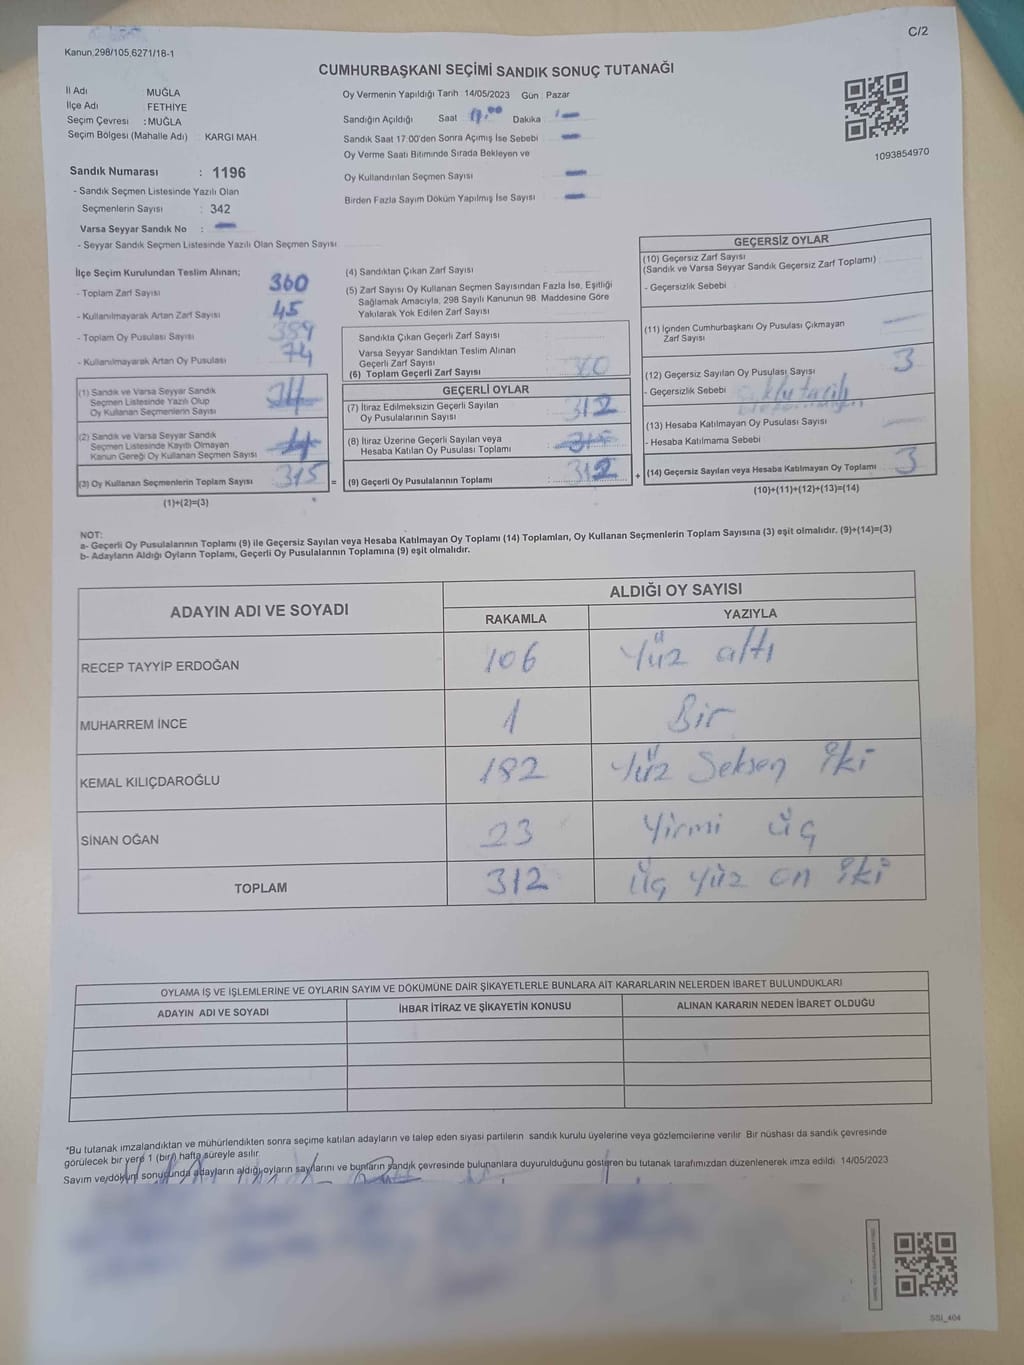 C/2
Kanun,298/105,6271/18-1
CUMHURBAŞKANI SEÇİMİ SANDIK SONUÇ TUTANAĞI
İl Adı : MUĞLA
İlçe Adı : FETHİYE
Seçim Çevresi : MUĞLA
Seçim Bölgesi (Mahalle Adı) : KARGI MAH.
Sandık Numarası : 1196
- Sandık Seçmen Listesinde Yazılı Olan
Seçmenlerin Sayısı : 342
Varsa Seyyar Sandık No : -
- Seyyar Sandık Seçmen Listesinde Yazılı Olan Seçmen Sayısı
Oy Vermenin Yapıldığı Tarih : 14/05/2023 Gün : Pazar
Sandığın Açıldığı Saat Dakika
Sandık Saat 17:00'den Sonra Açımış İse Sebebi -
Oy Verme Saati Bitiminde Sırada Bekleyen ve
Oy Kullandırılan Seçmen Sayısı -
Birden Fazla Sayım Döküm Yapılmış İse Sayısı -
1093854970
İlçe Seçim Kurulundan Teslim Alınan;
- Toplam Zarf Sayısı 360
- Kullanılmayarak Artan Zarf Sayısı 45
- Toplam Oy Pusulası Sayısı 389
- Kullanılmayarak Artan Oy Pusulası 74
(1) Sandık ve Varsa Seyyar Sandık
Seçmen Listesinde Yazılı Olup
Oy Kullanan Seçmenlerin Sayısı
(2) Sandık ve Varsa Seyyar Sandık
Seçmen Listesinde Kayıtlı Olmayan
Kanun Gereği Oy Kullanan Seçmen Sayısı
(3) Oy Kullanan Seçmenlerin Toplam Sayısı 315
(1)+(2)=(3)
(4) Sandıktan Çıkan Zarf Sayısı
(5) Zarf Sayısı Oy Kullanan Seçmen Sayısından Fazla İse, Eşitliği
Sağlamak Amacıyla, 298 Sayılı Kanunun 98. Maddesine Göre
Yakılarak Yok Edilen Zarf Sayısı
Sandıkta Çıkan Geçerli Zarf Sayısı
Varsa Seyyar Sandıktan Teslim Alınan
Geçerli Zarf Sayısı
(6) Toplam Geçerli Zarf Sayısı
GEÇERLİ OYLAR
(7) İtiraz Edilmeksizin Geçerli Sayılan
Oy Pusulalarının Sayısı 312
(8) İtiraz Üzerine Geçerli Sayılan veya
Hesaba Katılan Oy Pusulası Toplamı
= (9) Geçerli Oy Pusulalarının Toplamı : 312
+
GEÇERSİZ OYLAR
(10) Geçersiz Zarf Sayısı
(Sandık ve Varsa Seyyar Sandık Geçersiz Zarf Toplamı)
- Geçersizlik Sebebi
(11) İçinden Cumhurbaşkanı Oy Pusulası Çıkmayan
Zarf Sayısı
(12) Geçersiz Sayılan Oy Pusulası Sayısı 3
- Geçersizlik Sebebi
(13) Hesaba Katılmayan Oy Pusulası Sayısı
- Hesaba Katılmama Sebebi
(14) Geçersiz Sayılan veya Hesaba Katılmayan Oy Toplamı 3
(10)+(11)+(12)+(13)=(14)
NOT:
a- Geçerli Oy Pusulalarının Toplamı (9) ile Geçersiz Sayılan veya Hesaba Katılmayan Oy Toplamı (14) Toplamları, Oy Kullanan Seçmenlerin Toplam Sayısına (3) eşit olmalıdır. (9)+(14)=(3)
b- Adayların Aldığı Oyların Toplamı, Geçerli Oy Pusulalarının Toplamına (9) eşit olmalıdır.
ADAYIN ADI VE SOYADI
ALDIĞI OY SAYISI
RAKAMLA YAZIYLA
RECEP TAYYİP ERDOĞAN 106 Yüz altı
MUHARREM İNCE 1 Bir
KEMAL KILIÇDAROĞLU 182 Yüz Seksen İki
SİNAN OĞAN 23 Yirmi üç
TOPLAM 312 Üç yüz on İki
OYLAMA İŞ VE İŞLEMLERİNE VE OYLARIN SAYIM VE DÖKÜMÜNE DAİR ŞİKAYETLERLE BUNLARA AİT KARARLARIN NELERDEN İBARET BULUNDUKLARI
ADAYIN ADI VE SOYADI İHBAR İTİRAZ VE ŞİKAYETİN KONUSU ALINAN KARARIN NEDEN İBARET OLDUĞU
*Bu tutanak imzalandıktan ve mühürlendikten sonra seçime katılan adayların ve talep eden siyasi partilerin sandık kurulu üyelerine veya gözlemcilerine verilir. Bir nüshası da sandık çevresinde
görülecek bir yere 1 (bir) hafta süreyle asılır.
Sayım ve döküm sonucunda adayların aldığı oyların sayılarını ve bunların sandık çevresinde bulunanlara duyurulduğunu gösteren bu tutanak tarafımızdan düzenlenerek imza edildi. 14/05/2023
SSI_404